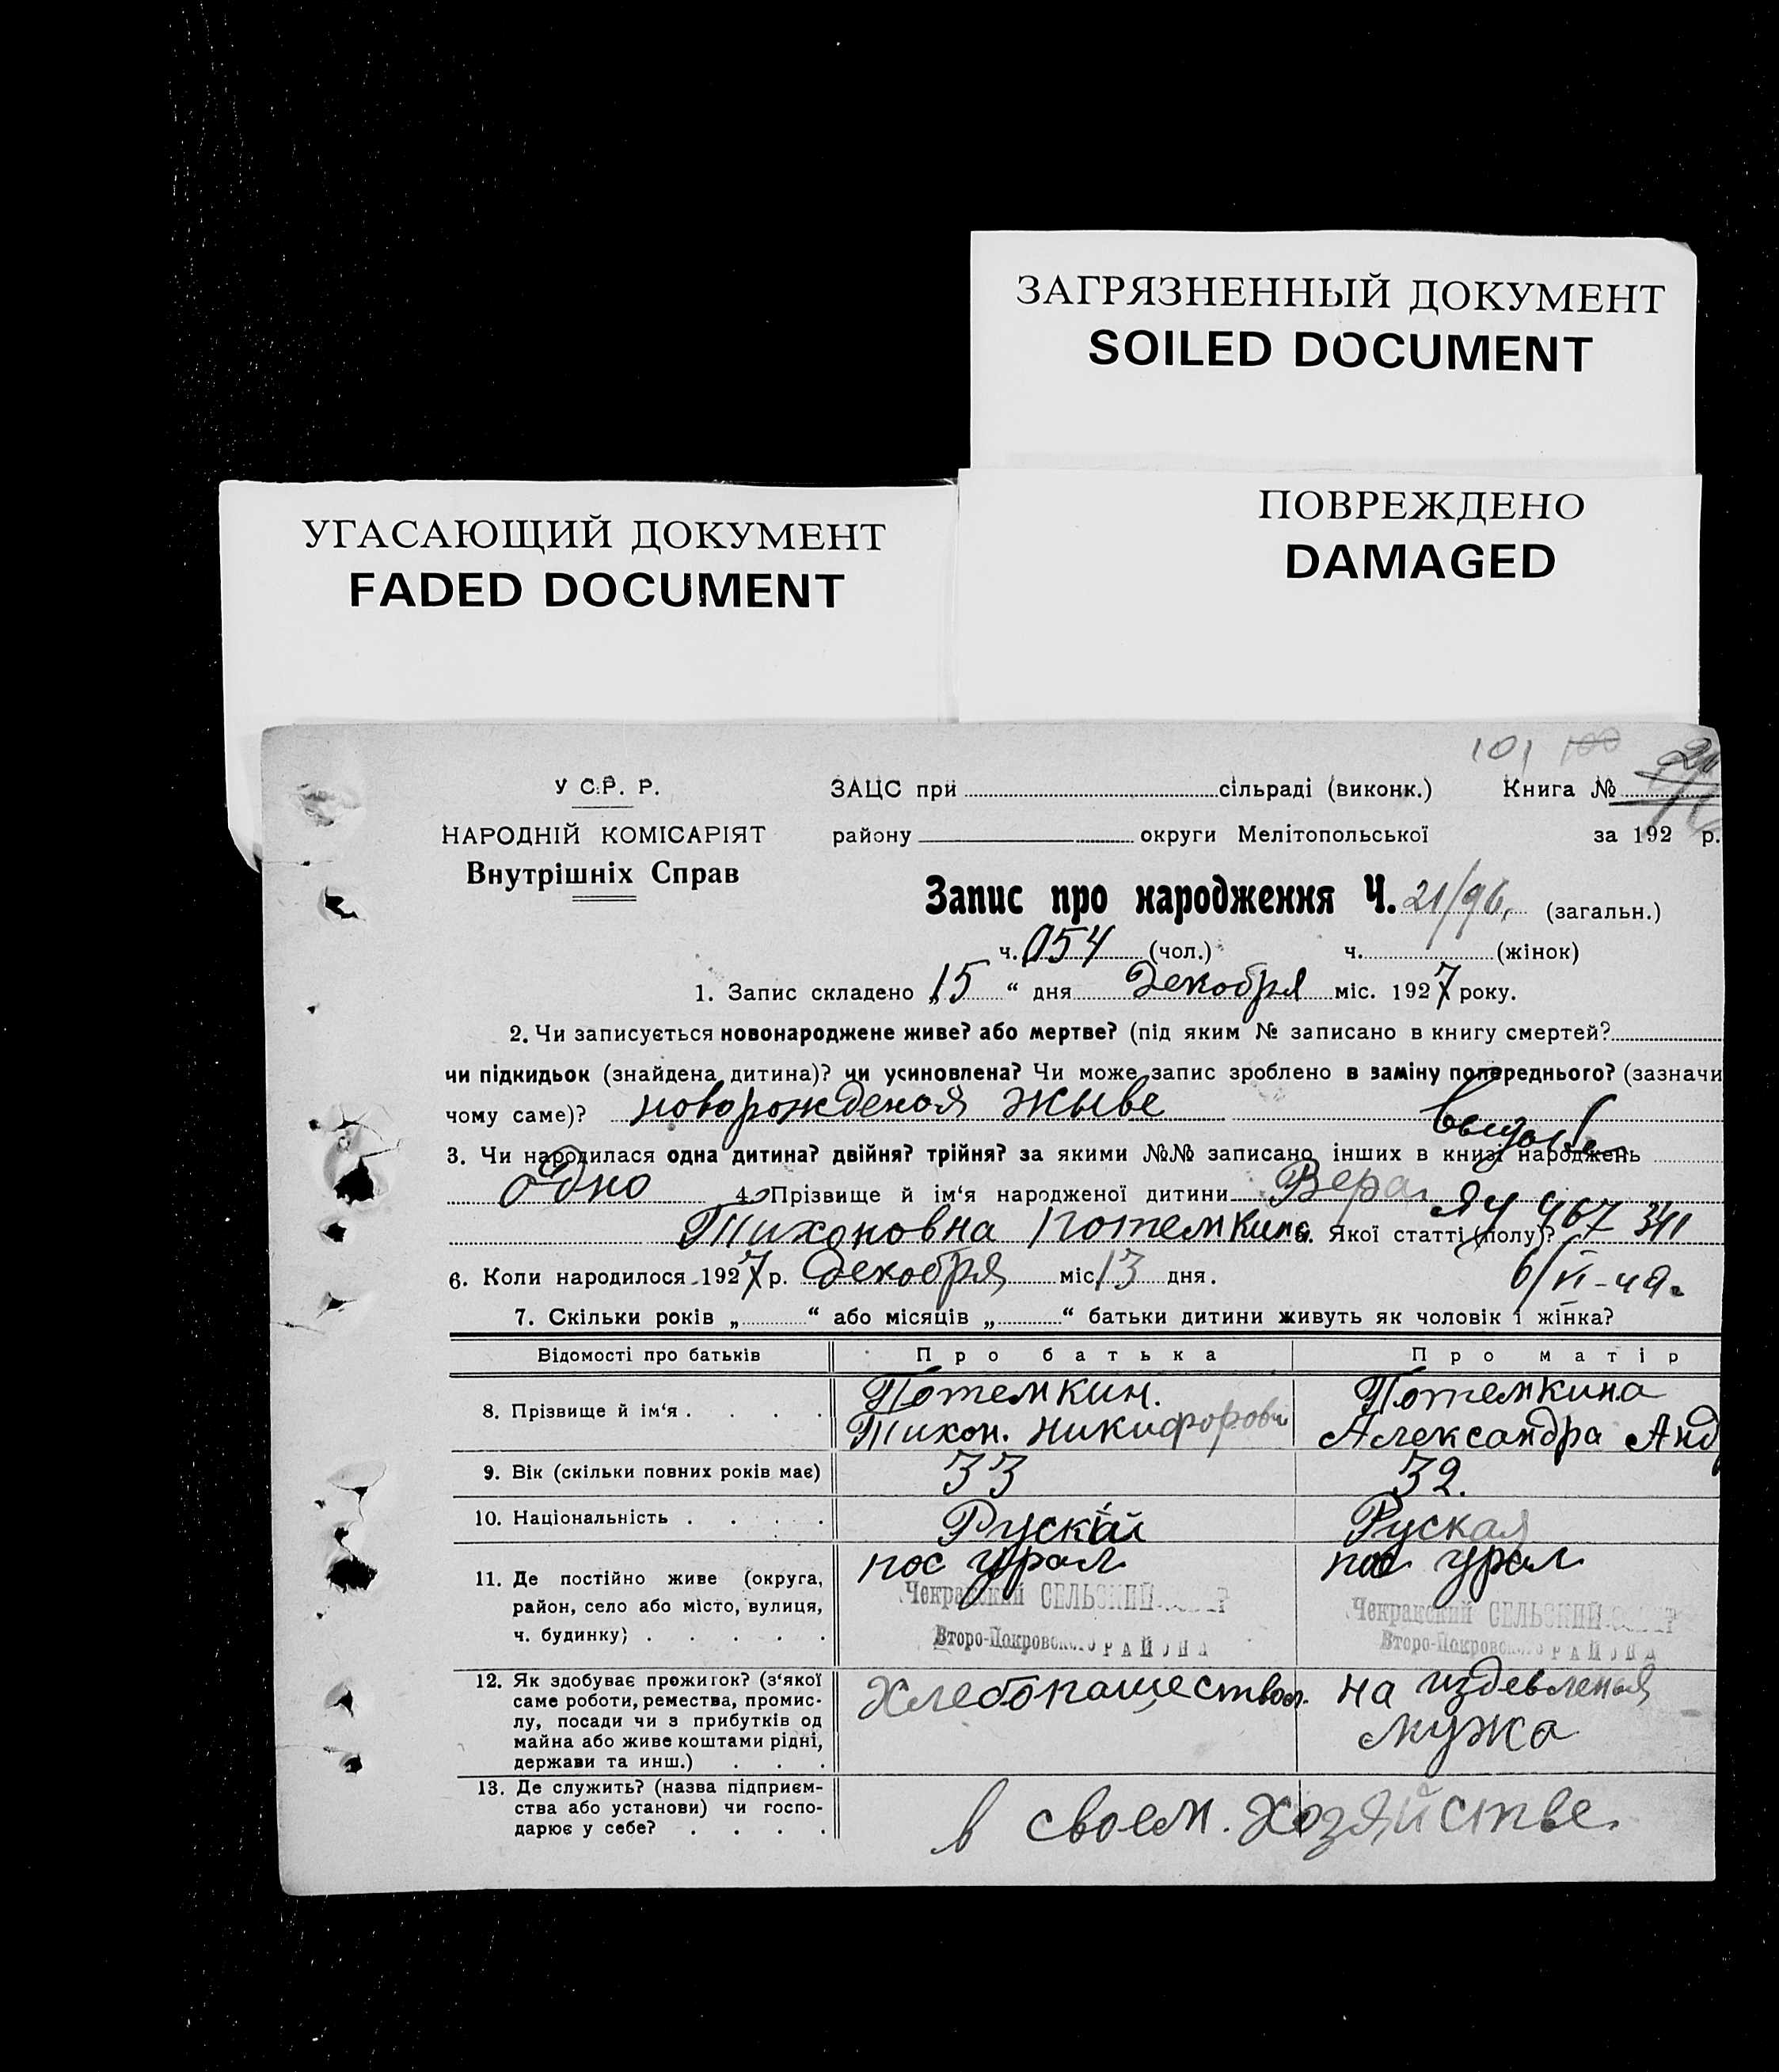 ЗАГРЯЗНЕННЫЙ ДОКУМЕНТ
SOILED DOCUMENT
УГАСАЮЩИЙ ДОКУМЕНТ
FADED DOCUMENT
ПОВРЕЖДЕНО
DAMAGED
101 100
У С.Р. Р.
НАРОДНІЙ КОМІСАРІЯТ
Внутрішніх Справ
ЗАЦС при сільраді (виконк.) Книга №
району округи Мелітопольської за 192 р.
Запис про народження Ч. 21/96. (загальн.)
ч. 054 (чол.) ч. (жінок)
1. Запис складено „15“ дня Декобря міс. 1927 року.
2. Чи записується новонароджене живе? або мертве? (під яким № записано в книгу смертей?
чи підкидьок (знайдена дитина)? чи усиновлена? Чи може запис зроблено в заміну попереднього? (зазначи
чому саме)? новорожденоя жыве
3. Чи народилася одна дитина? двійня? трійня? за якими №№ записано інших в книзі народжень
одно 4. Прізвище й ім‘я народженої дитини Вера
Тихоновна Потемкина. Якої статті (полу)?
ЯЧ 467 341
6. Коли народилося 1927 р. Декобря міс 13 дня.
7. Скільки років „ “ або місяців „ “ батьки дитини живуть як чоловік і жінка?
Відомості про батьків Про батька Про матір
8. Прізвище й ім‘я . . . . Потемкин. Тихон. Никифорови Потемкина Александра Анд
9. Вік (скільки повних років має) 33 32.
10. Національність . . . . Рускій Руская
11. Де постійно живе (округа,
район, село або місто, вулиця,
ч. будинку) . . . . .
пос урал
Чекракский СЕЛЬСКИЙ
Второ-Покровского РАЙОНА
пос урал
Чекракский СЕЛЬСКИЙ
Второ-Покровского РАЙОНА
12. Як здобуває прожиток? (з‘якої
саме роботи, ремества, промис-
лу, посади чи з прибутків од
майна або живе коштами рідні,
держави та инш.) . . .
Хлебопашеством.
на издевленыя
мужа
13. Де служить? (назва підприєм-
ства або установи) чи госпо-
дарює у себе? . . . .
в своем. хозяйстве.